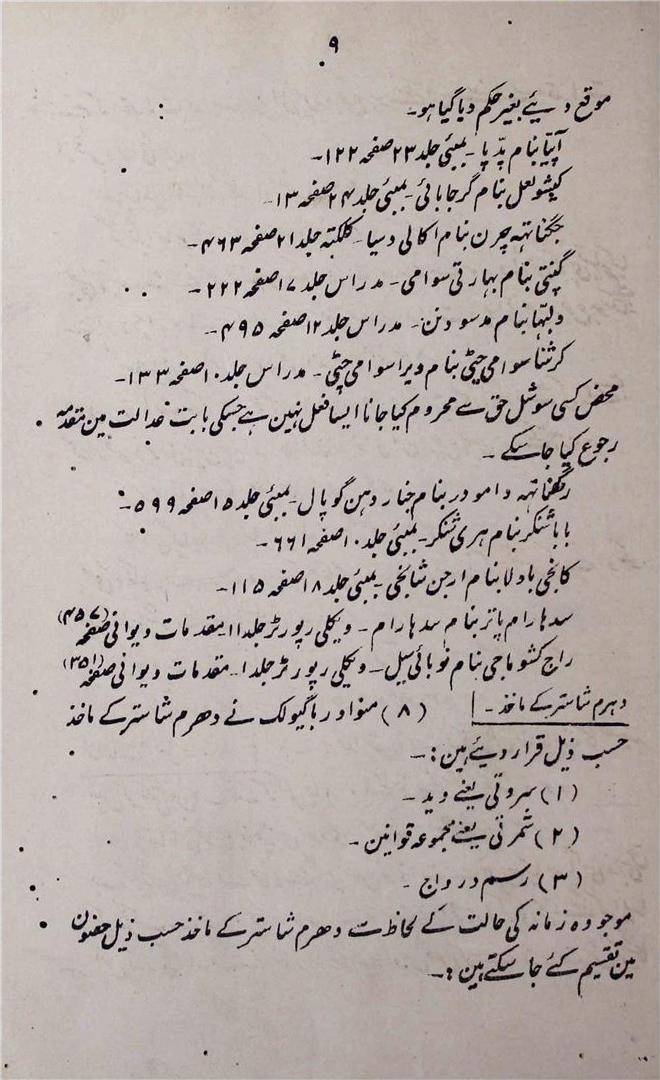 ۹
موقع دیئے بغیر حکم دیا گیا ہو۔
آپتیا بنام پدپا۔ بمبئی جلد ۲۳ صفحہ ۱۲۲۔
کیشولعل بنام گرجابائی۔ بمبئی جلد ۲۴ صفحہ ۱۳۔
جگناتہہ چرن بنام اکالی دسیا۔ کلکتہ جلد ۲۱ صفحہ ۴۶۳۔
گنپتی بنام بہارتی سوامی۔ مدراس جلد ۱۷ صفحہ ۲۲۲۔
ولبہا بنام مدسودنن۔ مدراس جلد ۱۲ صفحہ ۴۹۵۔
کرشنا سوامی چٹی بنام ویراسوامی چٹی۔ مدراس جلد ۱۰ صفحہ ۱۳۳۔
محض کسی سوشل حق سے محروم کیا جانا ایسا فعل نہین ہے جسکی بابت عدالت مین مقدمہ
رجوع کیا جاسکے۔
رگھناتہہ دامودر بنام جناردہن گوپال۔ بمبئی جلد ۱۵ صفحہ ۵۹۹۔
بابا شنکر بنام ہری شنکر۔ بمبئی جلد ۱۰ صفحہ ۶۶۱۔
کانجی باولا بنام ارجن شانجی۔ بمبئی جلد ۱۸ صفحہ ۱۱۵۔
سدہارام پاتر بنام سدہارام۔ ویکلی رپورٹر جلد ۱۱ مقدمات دیوانی صفحہ (۴۵۷)
راج کشوماجی بنام نوبائی سیل۔ ویکلی رپورٹر جلد ۱۔ مقدمات دیوانی صفحہ (۳۵۱)
دہرم شاستر کے ماخذ۔ (۸) منو اور یاگیولک نے دھرم شاستر کے ماخذ
حسب ذیل قرار دیئے ہین:۔
(۱) سروتی یعنے وید۔
(۲) شمرتی یعنے مجموعہ قوانین۔
(۳) رسم و رواج۔
موجودہ زمانہ کی حالت کے لحاظ سے دھرم شاستر کے ماخذ حسب ذیل حصون
مین تقسیم کئے جا سکتے ہین:۔